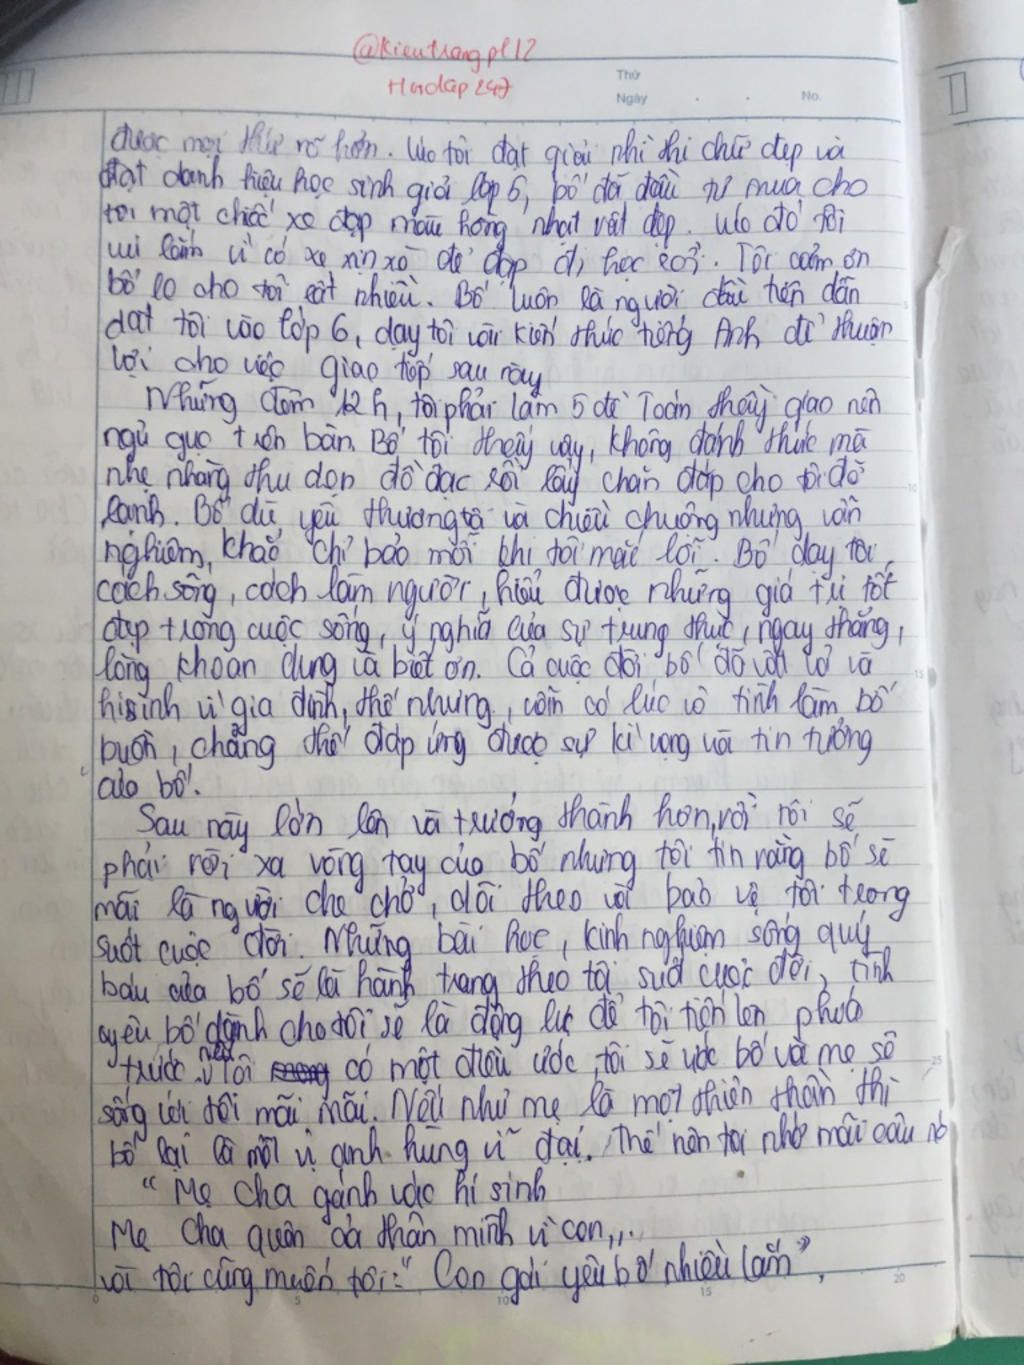 @kieutrangpl12
Hoidap247
Thứ
Ngày . . No.
được mọi thứ rõ hơn. Lúc tôi đạt giải nhì thi chữ đẹp và
đạt danh hiệu học sinh giỏi lớp 5, bố đã đầu tư mua cho
tôi một chiếc xe đạp màu hồng nhạt rất đẹp. Lúc đó tôi
vui lắm vì có xe xịn xò để đạp đi học rồi. Tôi cảm ơn
bố lo cho tôi rất nhiều. Bố luôn là người đầu tiên dẫn
dắt tôi vào lớp 6, dạy tôi vài kiến thức tiếng Anh để thuận
lợi cho việc giao tiếp sau này
Những đêm 12h, tôi phải làm 5 đề Toán thầy giao nên
ngủ gục trên bàn. Bố tôi thấy vậy, không đánh thức mà
nhẹ nhàng thu dọn đồ đạc rồi lấy chăn đắp cho tôi đỡ
lạnh. Bố dù yêu thương và chiều chuộng nhưng vẫn
nghiêm khắc chỉ bảo mỗi khi tôi mắc lỗi. Bố dạy tôi
cách sống, cách làm người, hiểu được những giá trị tốt
đẹp trong cuộc sống, ý nghĩa của sự trung thực, ngay thẳng,
lòng khoan dung và biết ơn. Cả cuộc đời bố đã vất vả và
hi sinh vì gia đình, thế nhưng, còn có lúc vô tình làm bố
buồn, chẳng thể đáp ứng được sự kì vọng và tin tưởng
của bố.
Sau này lớn lên và trưởng thành hơn, rồi tôi sẽ
phải rời xa vòng tay của bố nhưng tôi tin rằng bố sẽ
mãi là người che chở, dõi theo và bảo vệ tôi trong
suốt cuộc đời. Những bài học, kinh nghiệm sống quý
báu của bố sẽ là hành trang theo tôi suốt cuộc đời, tình
yêu bố dành cho tôi sẽ là động lực để tôi tiến lên phía
trước. Nếu tôi có một điều ước, tôi sẽ ước bố và mẹ sẽ
sống với tôi mãi mãi. Nếu như mẹ là một thiên thần thì
bố lại là một vị anh hùng vĩ đại. Thế nên tôi nhớ mãi câu nói
"Mẹ cha gánh vác hi sinh
Mẹ cha quên cả thân mình vì con,,..
và tôi cũng muốn tôi:"Con gái yêu bố nhiều lắm",
0 5 10 15 20
5
10
15
25